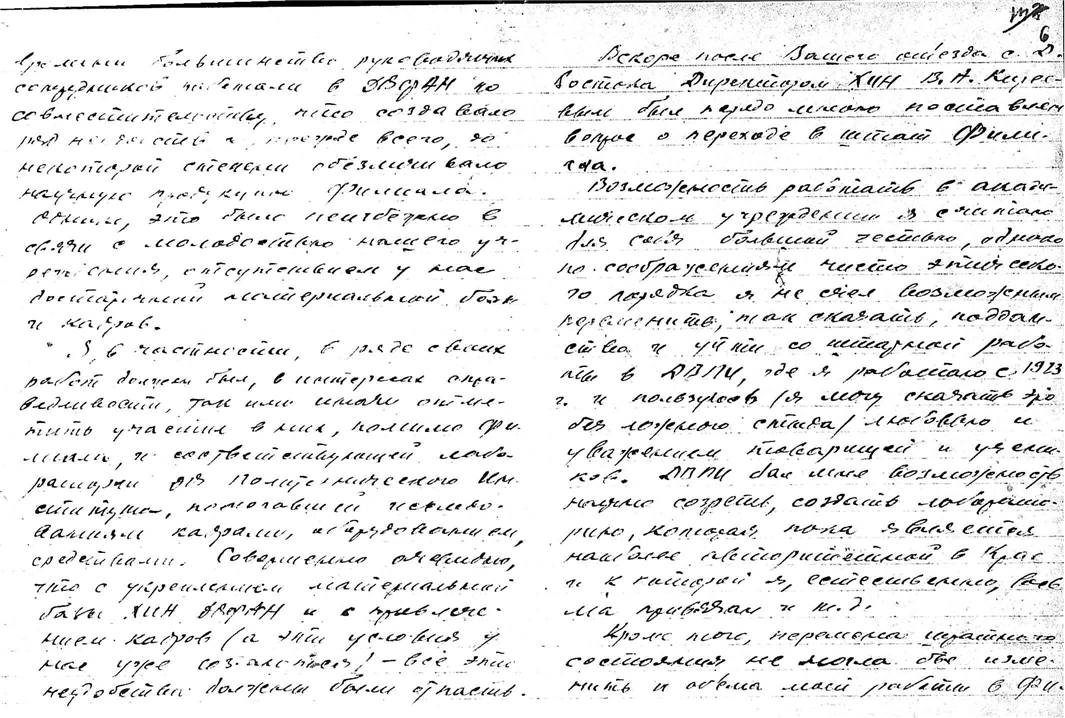 времени большинство руководящих
сотрудников работали в ДВФАН по
совместительству, что создавало
ряд неудобств и, прежде всего, до
некоторой степени обезличивало
научную продукцию Филиала.
это было неизбежно в
связи с молодостью нашего уч-
реждения, отсутствием у нас
достаточной материальной базы
и кадров.
Я, в частности, в ряде своих
работ должен был, в интересах спра-
ведливости, так или иначе отме-
тить участие в них, помимо Фи-
лиала, и соответствующей лабо-
ратории ДВ Политехнического Ин-
ститута, помогавшей исследо-
ваниям кадрами, оборудованием,
средствами. Совершенно очевидно,
что с укреплением материальной
базы ХИН ДВФАН и с привлече-
нием кадров (а эти условия у
нас уже создались) – все эти
неудобства должны были отпасть.
6
Вскоре после Вашего отъезда с Д.
Востока Директором ХИН В.А.
был передо мною поставлен
вопрос о переходе в штат Фили-
ала.
Возможность работать в акаде-
мическом учреждении я считаю
для себя большой честью, однако
по соображениям чисто этическо-
го порядка я не счел возможным
переменить, так сказать, поддан-
ство и уйти со штатной рабо-
ты в ДВПИ, где я работаю с 1923
г. и пользуюсь (я могу сказать это
без ложного стыда) любовью и
уважением товарищей и учени-
ков. ДВПИ дал мне возможность
научно созреть, создать лаборато-
рию, которая пока является
наиболее авторитетной в Крае
и к которой я, естественно, весь-
ма привязан и т.д.
Кроме того, перемена штатного
состояния не могла бы изме-
нить и объема моей работы в Фи-